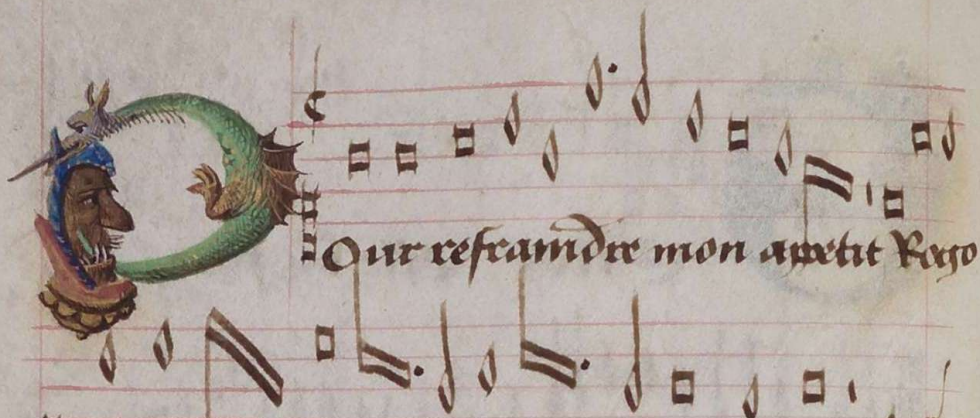 Pour refraindre mon apetit Rogo